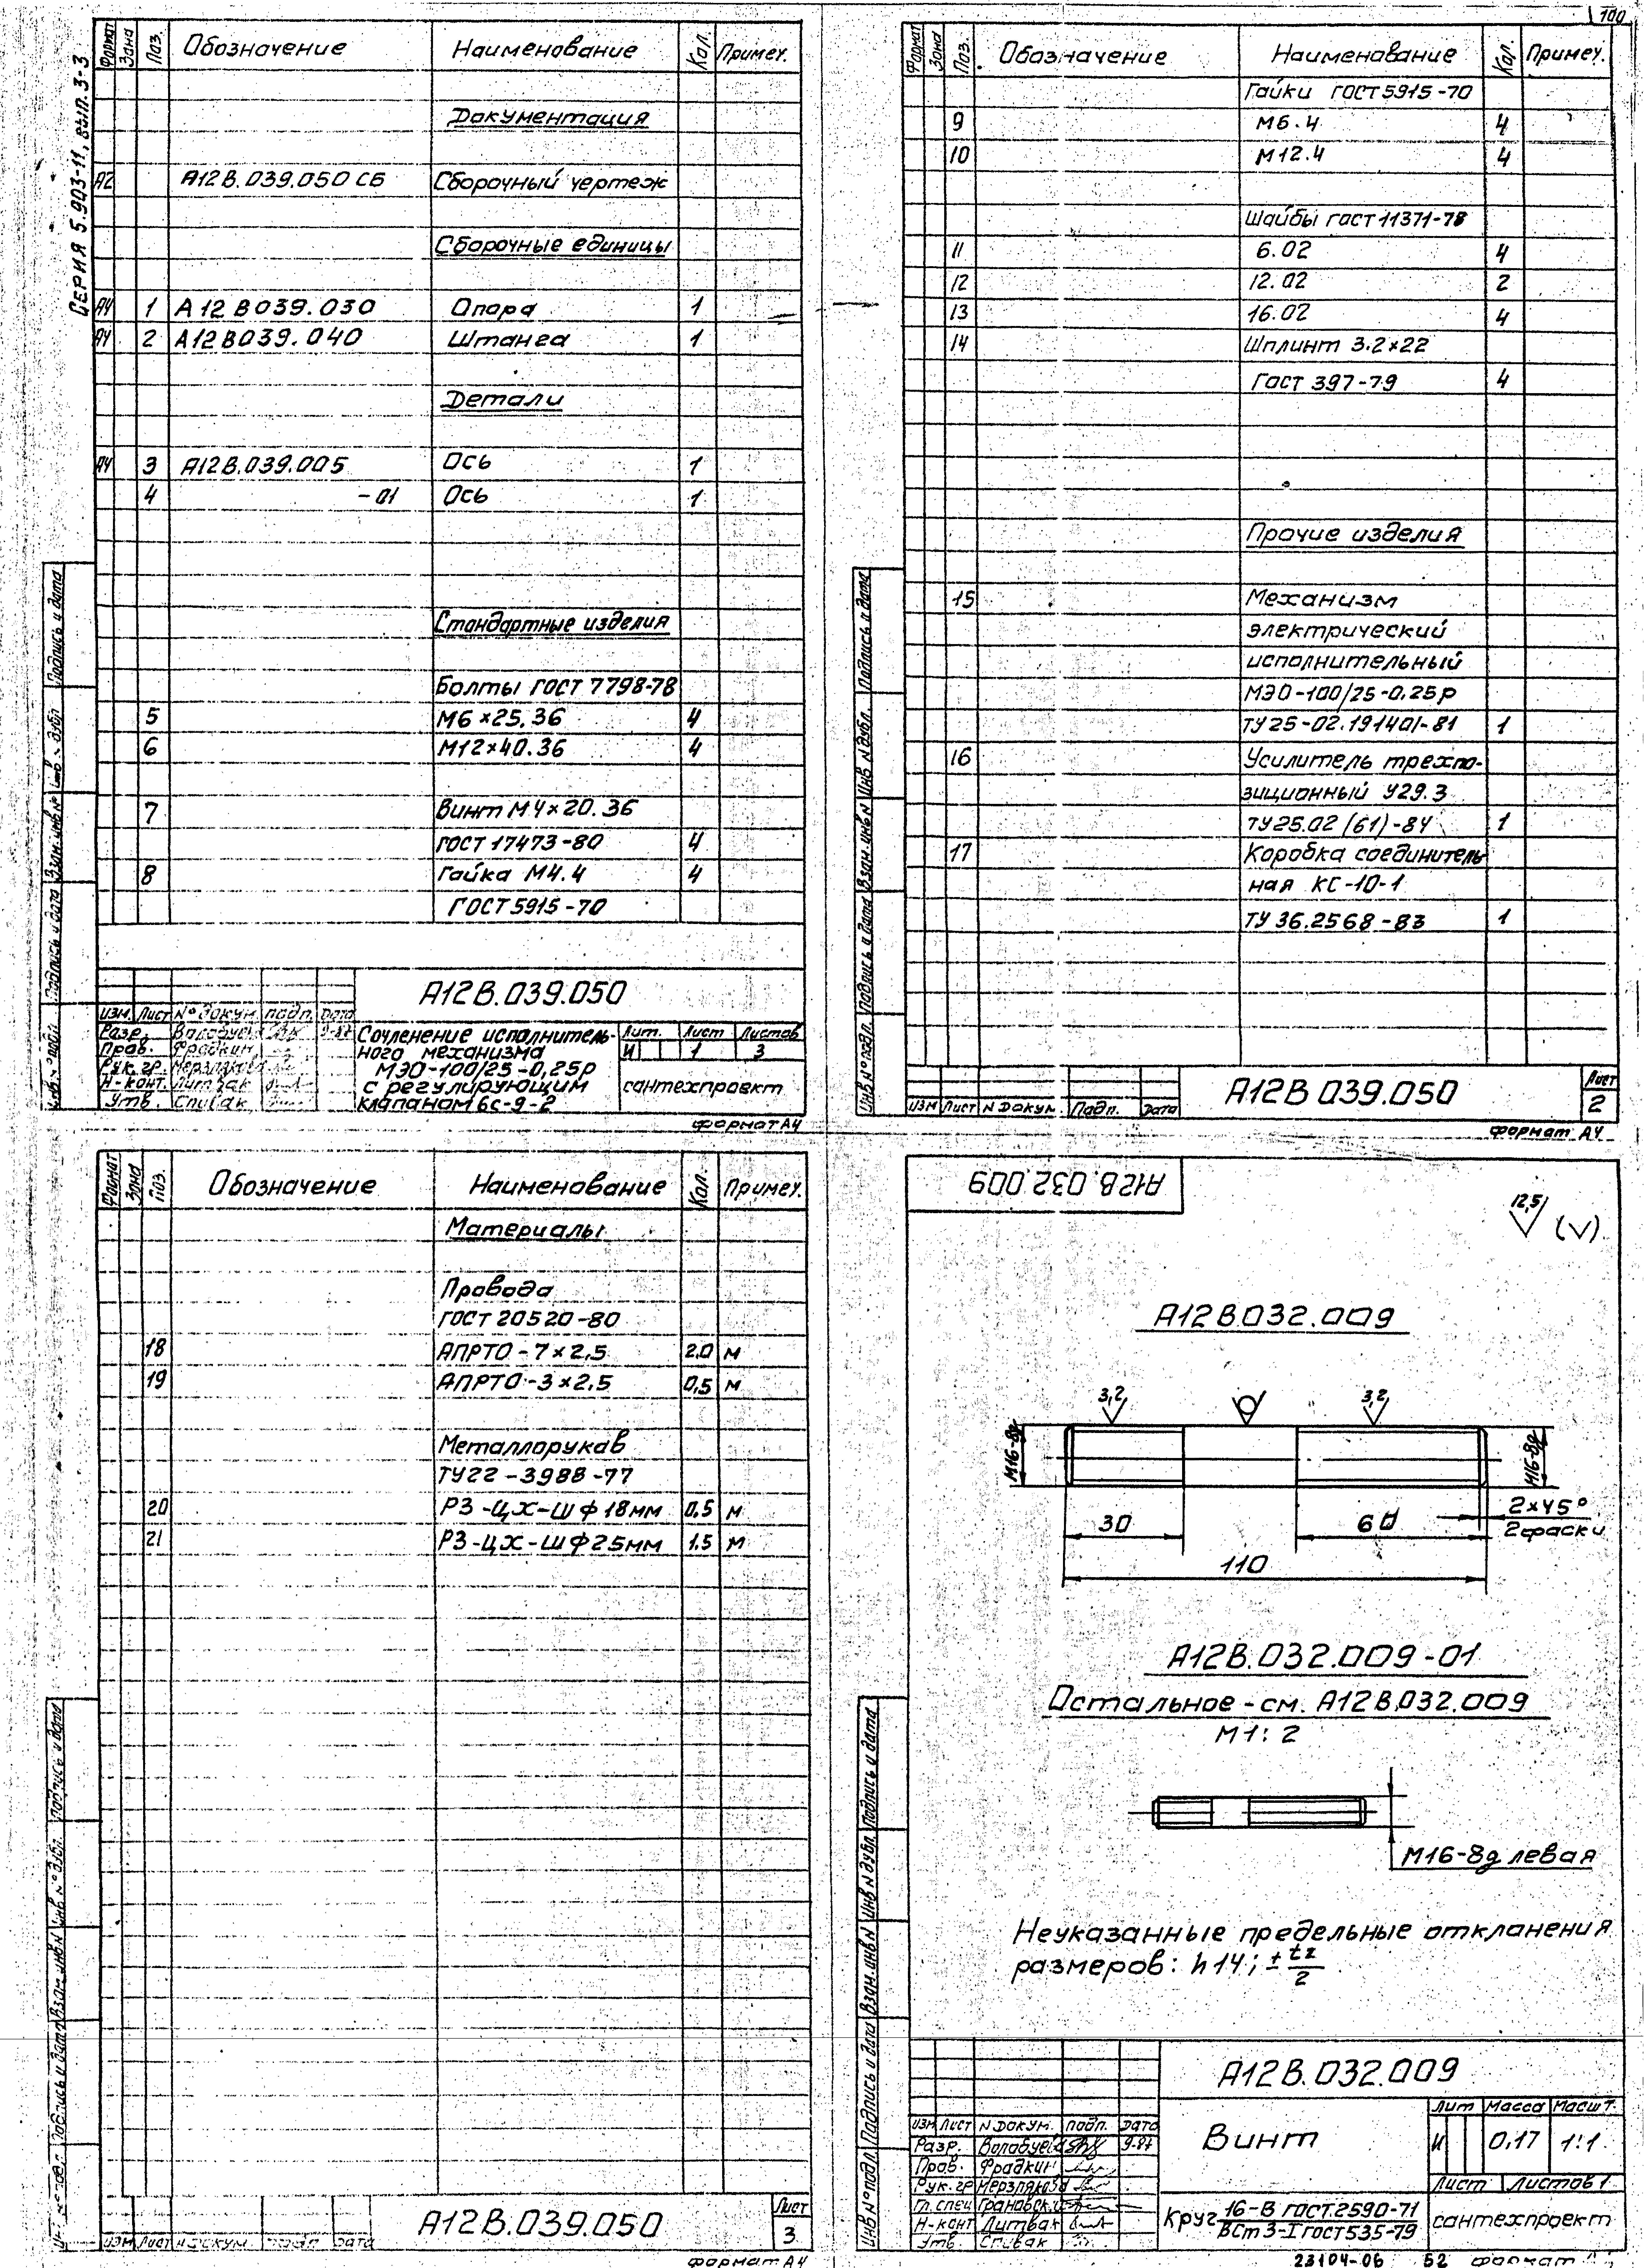 100
Серия 5.903-11, вып. 3-3
Формат Зона Поз. Обозначение Наименование Кол. Примеч.
Документация
А2 А12В.039.050 СБ Сборочный чертеж
Сборочные единицы
А4 1 А12В039.030 Опора 1
А4 2 А12В039.040 Штанга 1
Детали
А4 3 А12В.039.005 Ось 1
4 -01 Ось 1
Стандартные изделия
Болты ГОСТ 7798-78
5 М6×25.36 4
6 М12×40.36 4
7 Винт М4×20.36
ГОСТ 17473-80 4
8 Гайка М4.4 4
ГОСТ 5915-70
А12В.039.050
Изм. Лист № докум. подп. Дата
Разр.
Пров. Фрадкин
Рук. гр.
Н-конт. Литвак
Утв. Спивак
Сочленение исполнитель-
ного механизма
МЭО-100/25-0,25р
с регулирующим
клапаном 6с-9-2
Лит. Лист Листов
И 1 3
сантехпроект
формат А4
Формат Зона Поз. Обозначение Наименование Кол. Примеч.
Гайки ГОСТ 5915-70
9 М6.4 4
10 М12.4 4
Шайбы гост 11371-78
11 6.02 4
12 12.02 2
13 16.02 4
14 Шплинт 3.2×22
Гост 397-79 4
Прочие изделия
15 Механизм
электрический
исполнительный
МЭО-100/25-0,25р
ТУ25-02.191401-81 1
16 Усилитель трехпо-
зиционный У29.3
ТУ25.02 (61)-84 1
17 Коробка соединитель
ная КС-10-1
ТУ 36.2568-83 1
Инв № подл. Подпись и дата Взам. инв № Инв № дубл. Подпись и дата
Изм Лист N Докум. Подп. Дата
А12В 039.050
Лист
2
формат А4
Формат Зона Поз. Обозначение Наименование Кол. Примеч.
Материалы
Провода
ГОСТ 20520-80
18 АПРТО-7×2,5 2.0 м
19 АПРТО-3×2,5 0,5 м
Металлорукав
ТУ22-3988-77
20 РЗ-ЦХ-Ш Ф18мм 0,5 м
21 РЗ-ЦХ-Ш Ф25мм 1.5 м
А12В.039.050
Лист
3
формат А4
А12В.032.009
12,5 (√)
А12В.032.009
3,2 3,2
М16-8g М16-8g
30 60
2×45°
2 фаски
110
А12В.032.009-01
Остальное-см. А12В.032.009
М1:2
М16-8g левая
Неуказанные предельные отклонения
размеров: h14; ± t2/2
Инв № подл. Подпись и дата Взам. инв № Инв № дубл. Подпись и дата
А12В.032.009
Изм Лист N Докум. подп. Дата
Разр. 9-87
Пров. Фрадкин
Рук. гр Мерзлякова
Гл. спец
Н-конт Литвак
Утв. Спивак
Винт
Лит Масса Масшт.
И 0,17 1:1
Лист Листов 1
Круг 16-В гост 2590-71
ВСт 3-I гост 535-79
сантехпроект
23104-06 52 формат